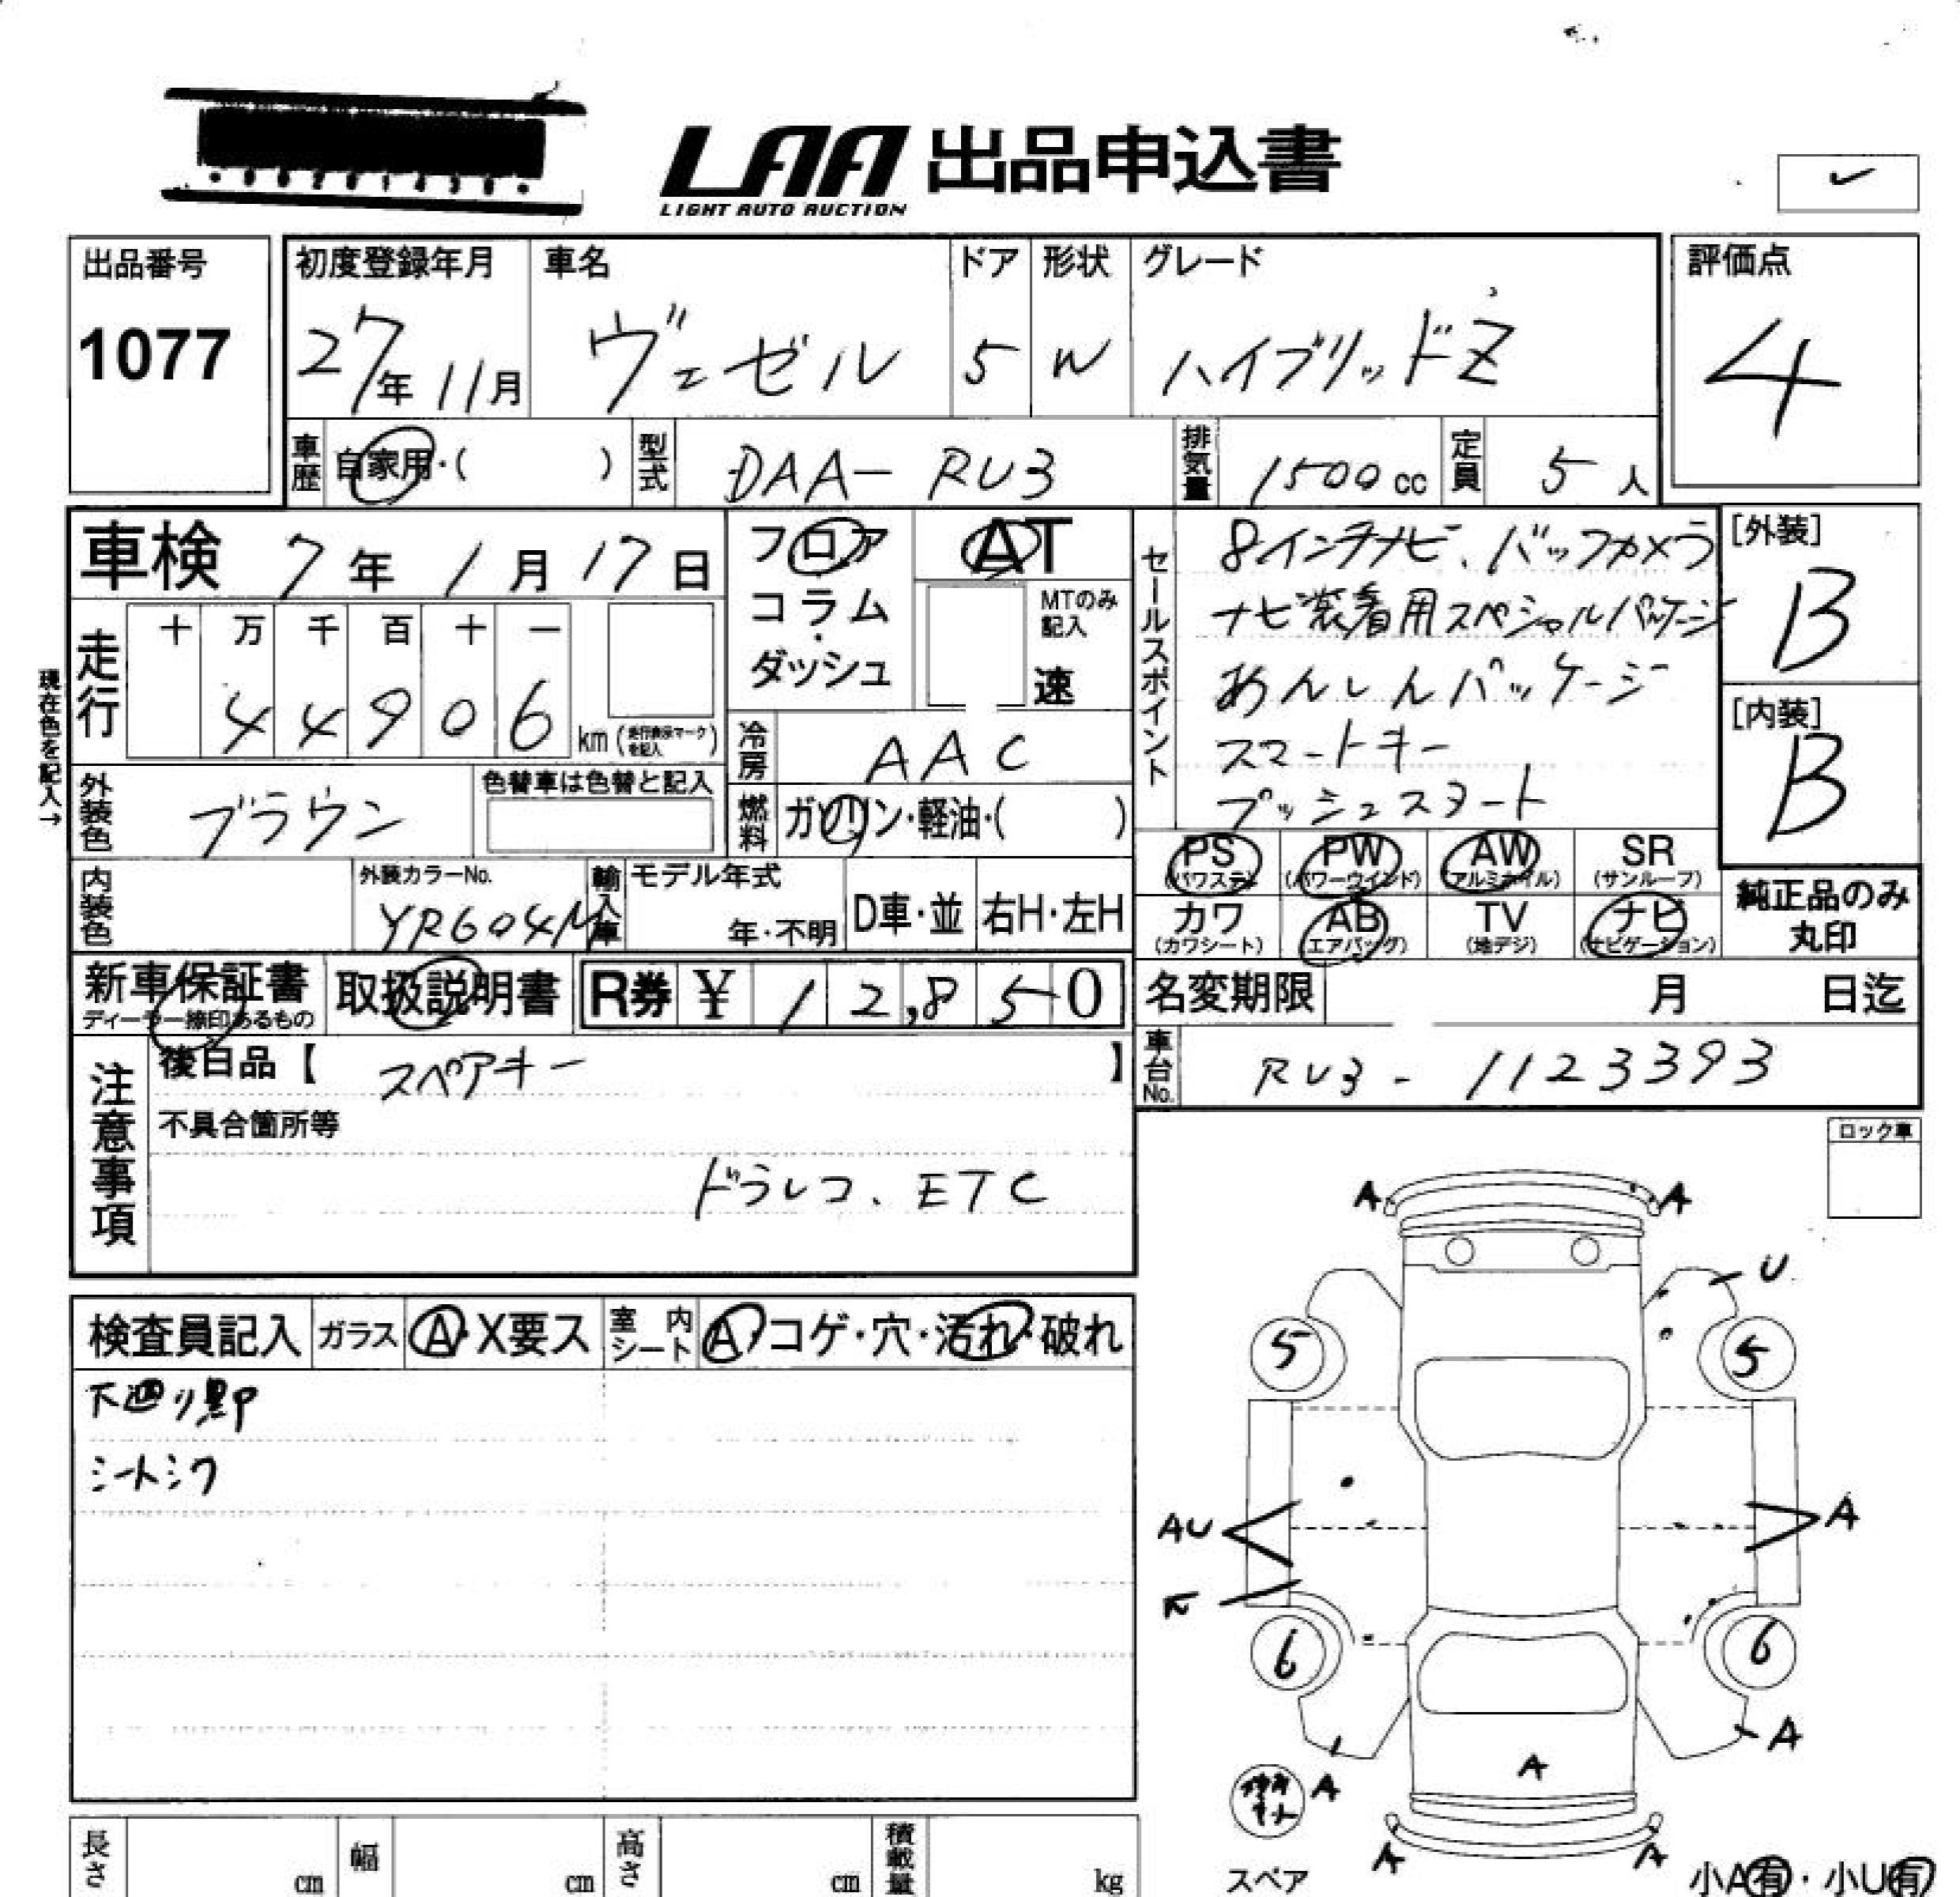 LAA 出品申込書
LIGHT AUTO AUCTION
出品番号
1077
初度登録年月
27年 11月
車名
ヴェゼル
ドア
5
形状
W
グレード
ハイブリッドZ
評価点
4
車歴
自家用・( )
型式
DAA-RU3
排気量
1500 cc
定員
5 人
車検 7年 1月 17日
フロア
コラム
・
ダッシュ
AT
MTのみ
記入
速
セールスポイント
8インチナビ、バックカメラ
ナビ装着用スペシャルパッケージ
あんしんパッケージ
スマートキー
プッシュスタート
[外装]
B
[内装]
B
現在色を記入→
走行
十 万 千 百 十 一
4 4 9 0 6
km (走行表示マークを記入)
冷房
AAC
外装色
ブラウン
色替車は色替と記入
燃料
ガソリン・軽油・( )
PS
(パワステ)
PW
(パワーウインド)
AW
(アルミホイル)
SR
(サンルーフ)
内装色
外装カラーNo.
YR604M
輸入車
モデル年式
年・不明
D車・並
右H・左H
カワ
(カワシート)
AB
(エアバッグ)
TV
(地デジ)
ナビ
(ナビゲーション)
純正品のみ
丸印
新車保証書
ディーラー捺印あるもの
取扱説明書
R券 ¥ 12,850
名変期限 月 日迄
車台No.
RU3-1123393
注意事項
後日品【 スペアキー 】
不具合箇所等
ドラレコ、ETC
ロック車
検査員記入
ガラス
A・X要ス
室内シート
A・コゲ・穴・汚れ・破れ
シートシワ
A A
U
5 5
AU A
6 6
A
A A
スペア
小A有・小U有
長さ cm
幅 cm
高さ cm
積載量 kg